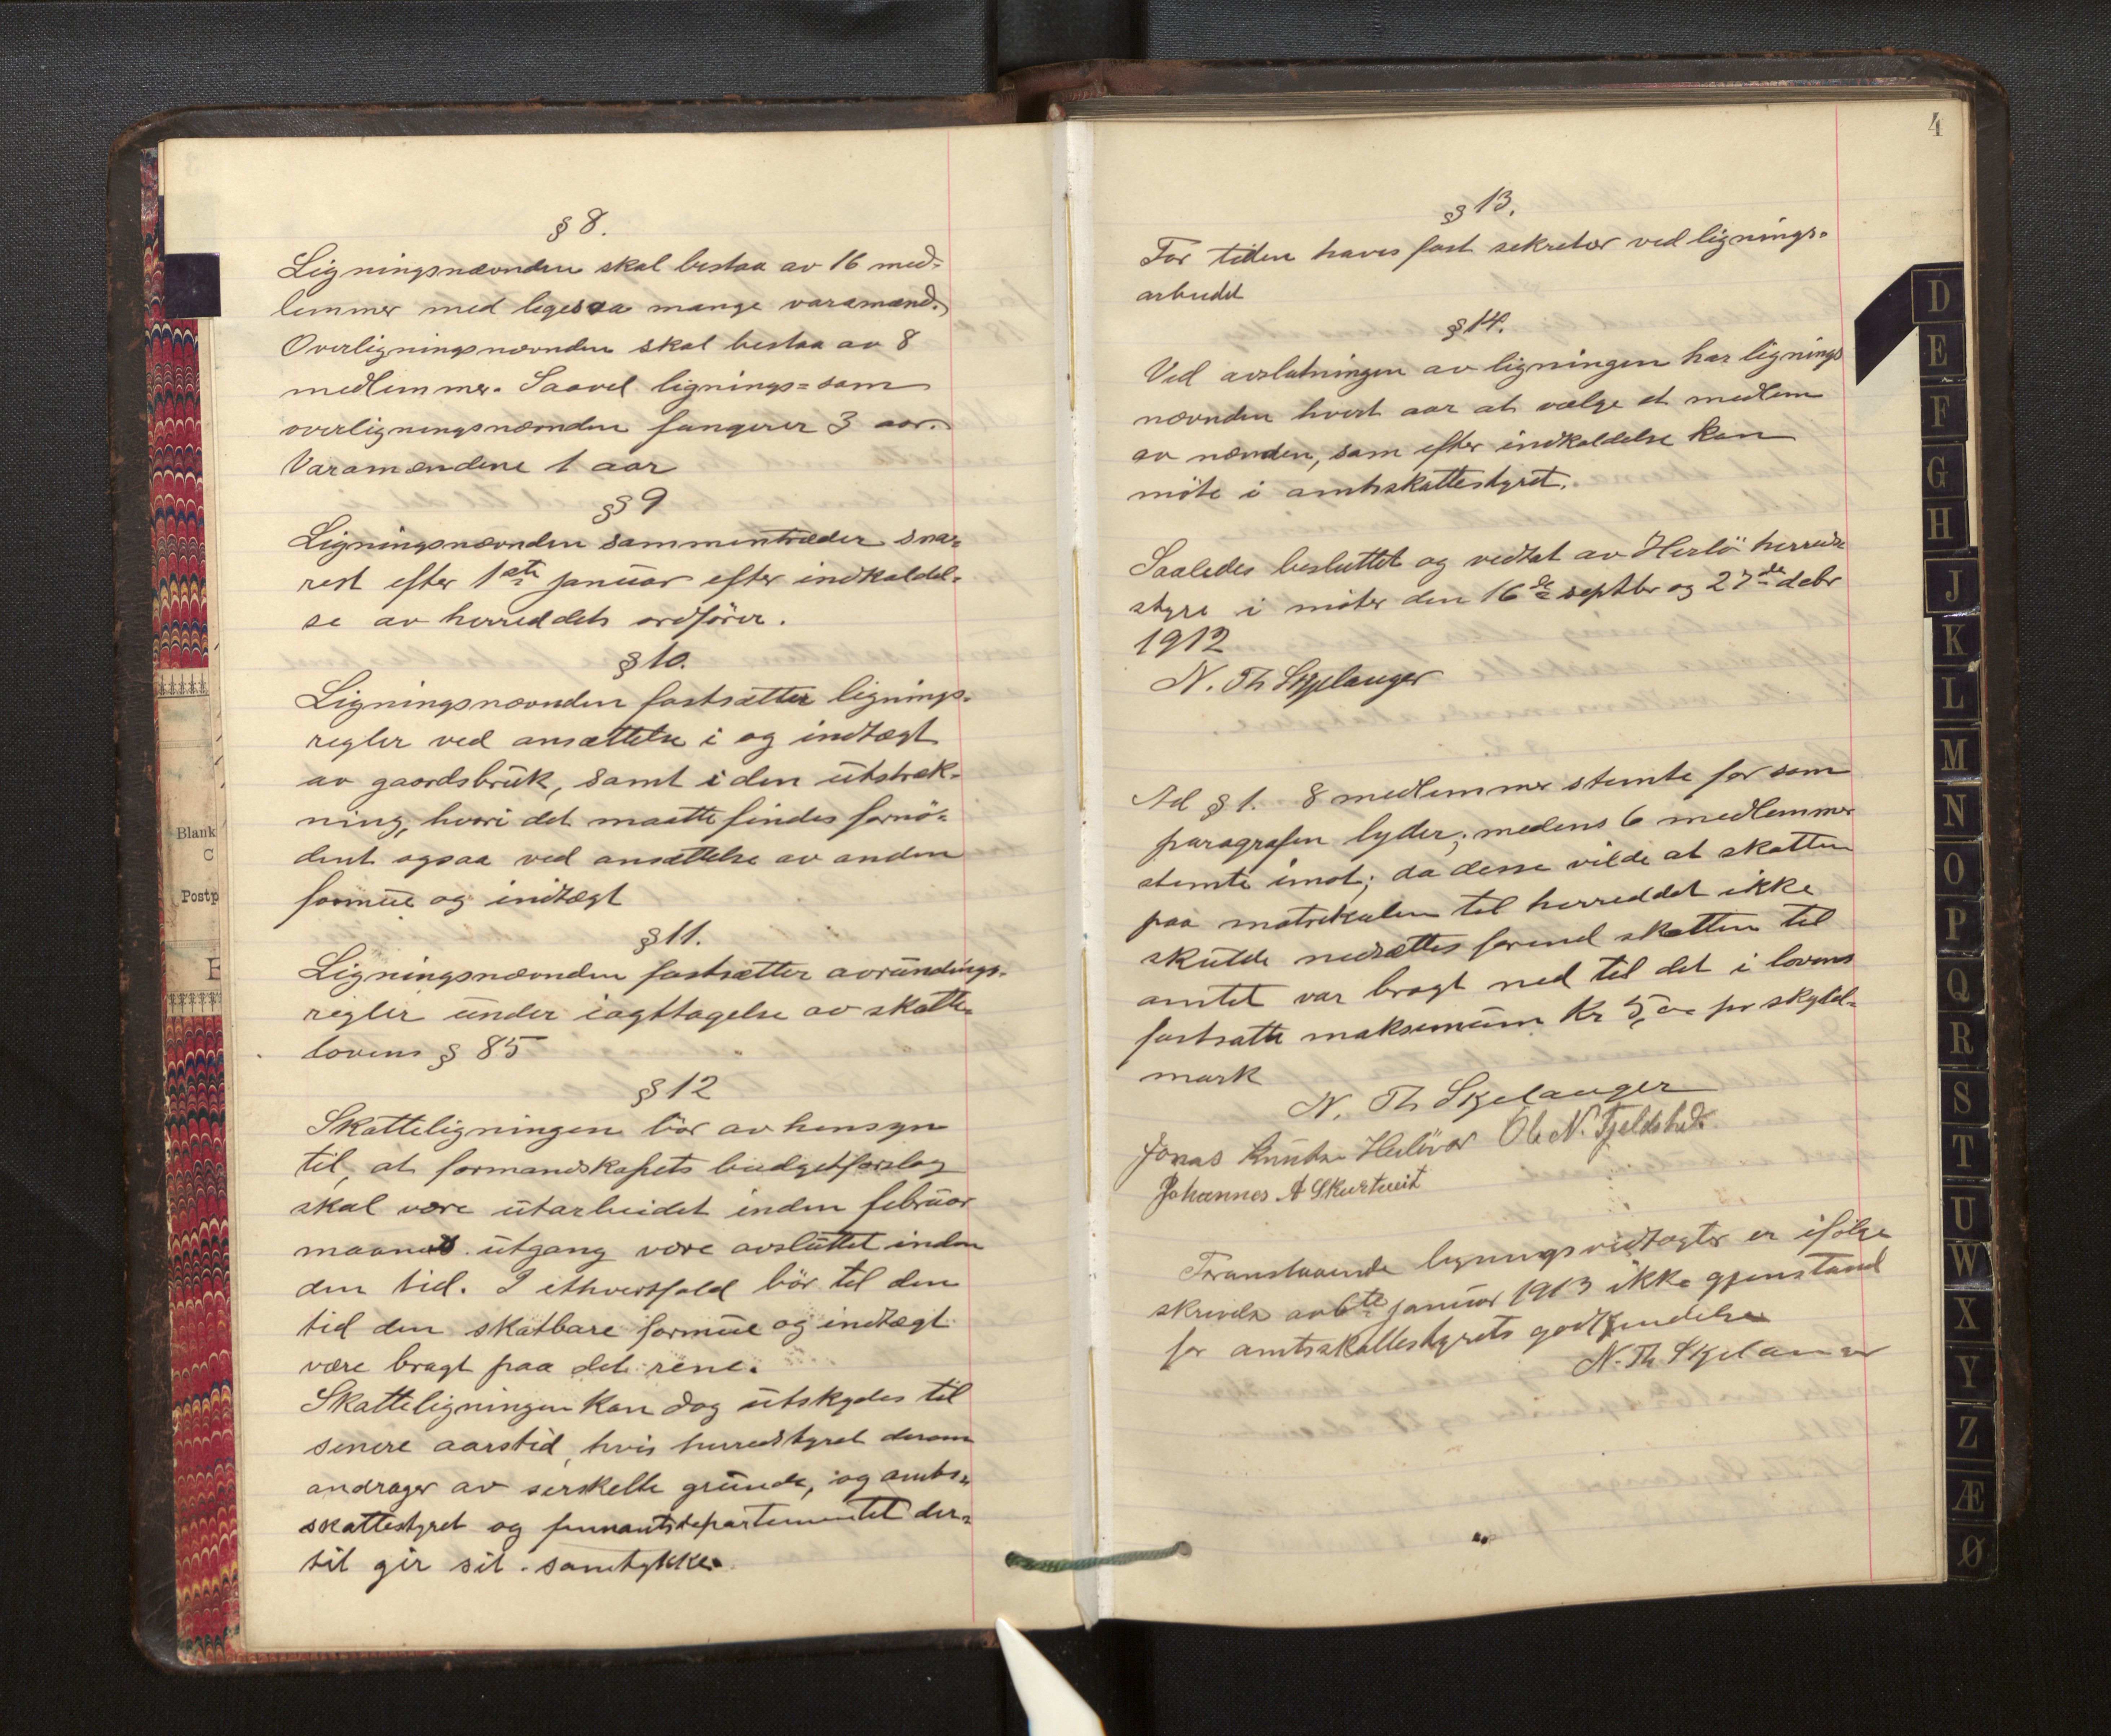 § 8.
Ligningsnævnden skal bestaa av 16 med-
lemmer med ligesaa mange varamænd.
Overligningsnævnden skal bestaa av 8
medlemmer. Saavel lignings- som
overligningsnævnden fungerer 3 aar.
Varamændene 1 aar
§ 9
Ligningsnævnden sammentræder sna-
rest efter 1ste januar efter indkaldel-
se av herreddets ordfører.
§ 10.
Ligningsnævnden fastsætter lignings-
regler ved ansættelse i og indtægt
av gaardsbruk, samt i den utstræk-
ning, hvori det maatte findes fornö-
dent ogsaa ved ansættelse av anden
formue og indtægt
§ 11.
Ligningsnævnden fastsætter avrundings-
regler under iagttagelse av skatte-
lovens § 85
§ 12
Skatteligningen bör av hensyn
til, at formandskapets budgetforslag
skal være utarbeidet inden februar
maaneds utgang være avsluttet inden
den tid. I ethvertfald bör til den
tid den skatbare formue og indtægt
være bragt paa det rene.
Skatteligningen kan dog utskydes til
senere aarstid, hvis herredstyret derom
andrager av serskelte grunde, og amts-
skattestyret og finnantsdepartementet der-
til gir sit samtykke.
Blank
Postp
4
§ 13.
For tiden haves fast sekretær ved lignings-
arbeidet
§ 14.
Ved avslutningen av ligningen har lignings
nævnden hvert aar at vælge et medlem
av nævnden, som efter indkaldelse kan
möte i amtsskattestyret.
Saaledes besluttet og vedtat av Herlö herreds
styre i möter den 16de septbr og 27de debr
1912
N. Th Skjelanger
Ad § 1. 8 medlemmer stemte for som
paragrafen lyder; medens 6 medlemmer
stemte imot; da desse vilde at skatten
paa matrikulen til herreddet ikke
skulde nedsættes forend skatten til
amtet var bragt ned til det i lovens
fastsatte maksimum Kr 5,00 pr skyld-
mark
N. Th Skjelanger
Jonas Knutsen Herlövær Ole N. Fjeldstad
Johannes A Skurtveit
Foranstaaende ligningsvedtægter er ifölge
skrivelse av 6te januar 1913 ikke gjenstand
for amtsskattestyrets godkjendelse
N. Th Skjelanger
D
E
F
G
H
J
K
L
M
N
O
P
Q
R
S
T
U
W
X
Y
Z
Æ
Ø